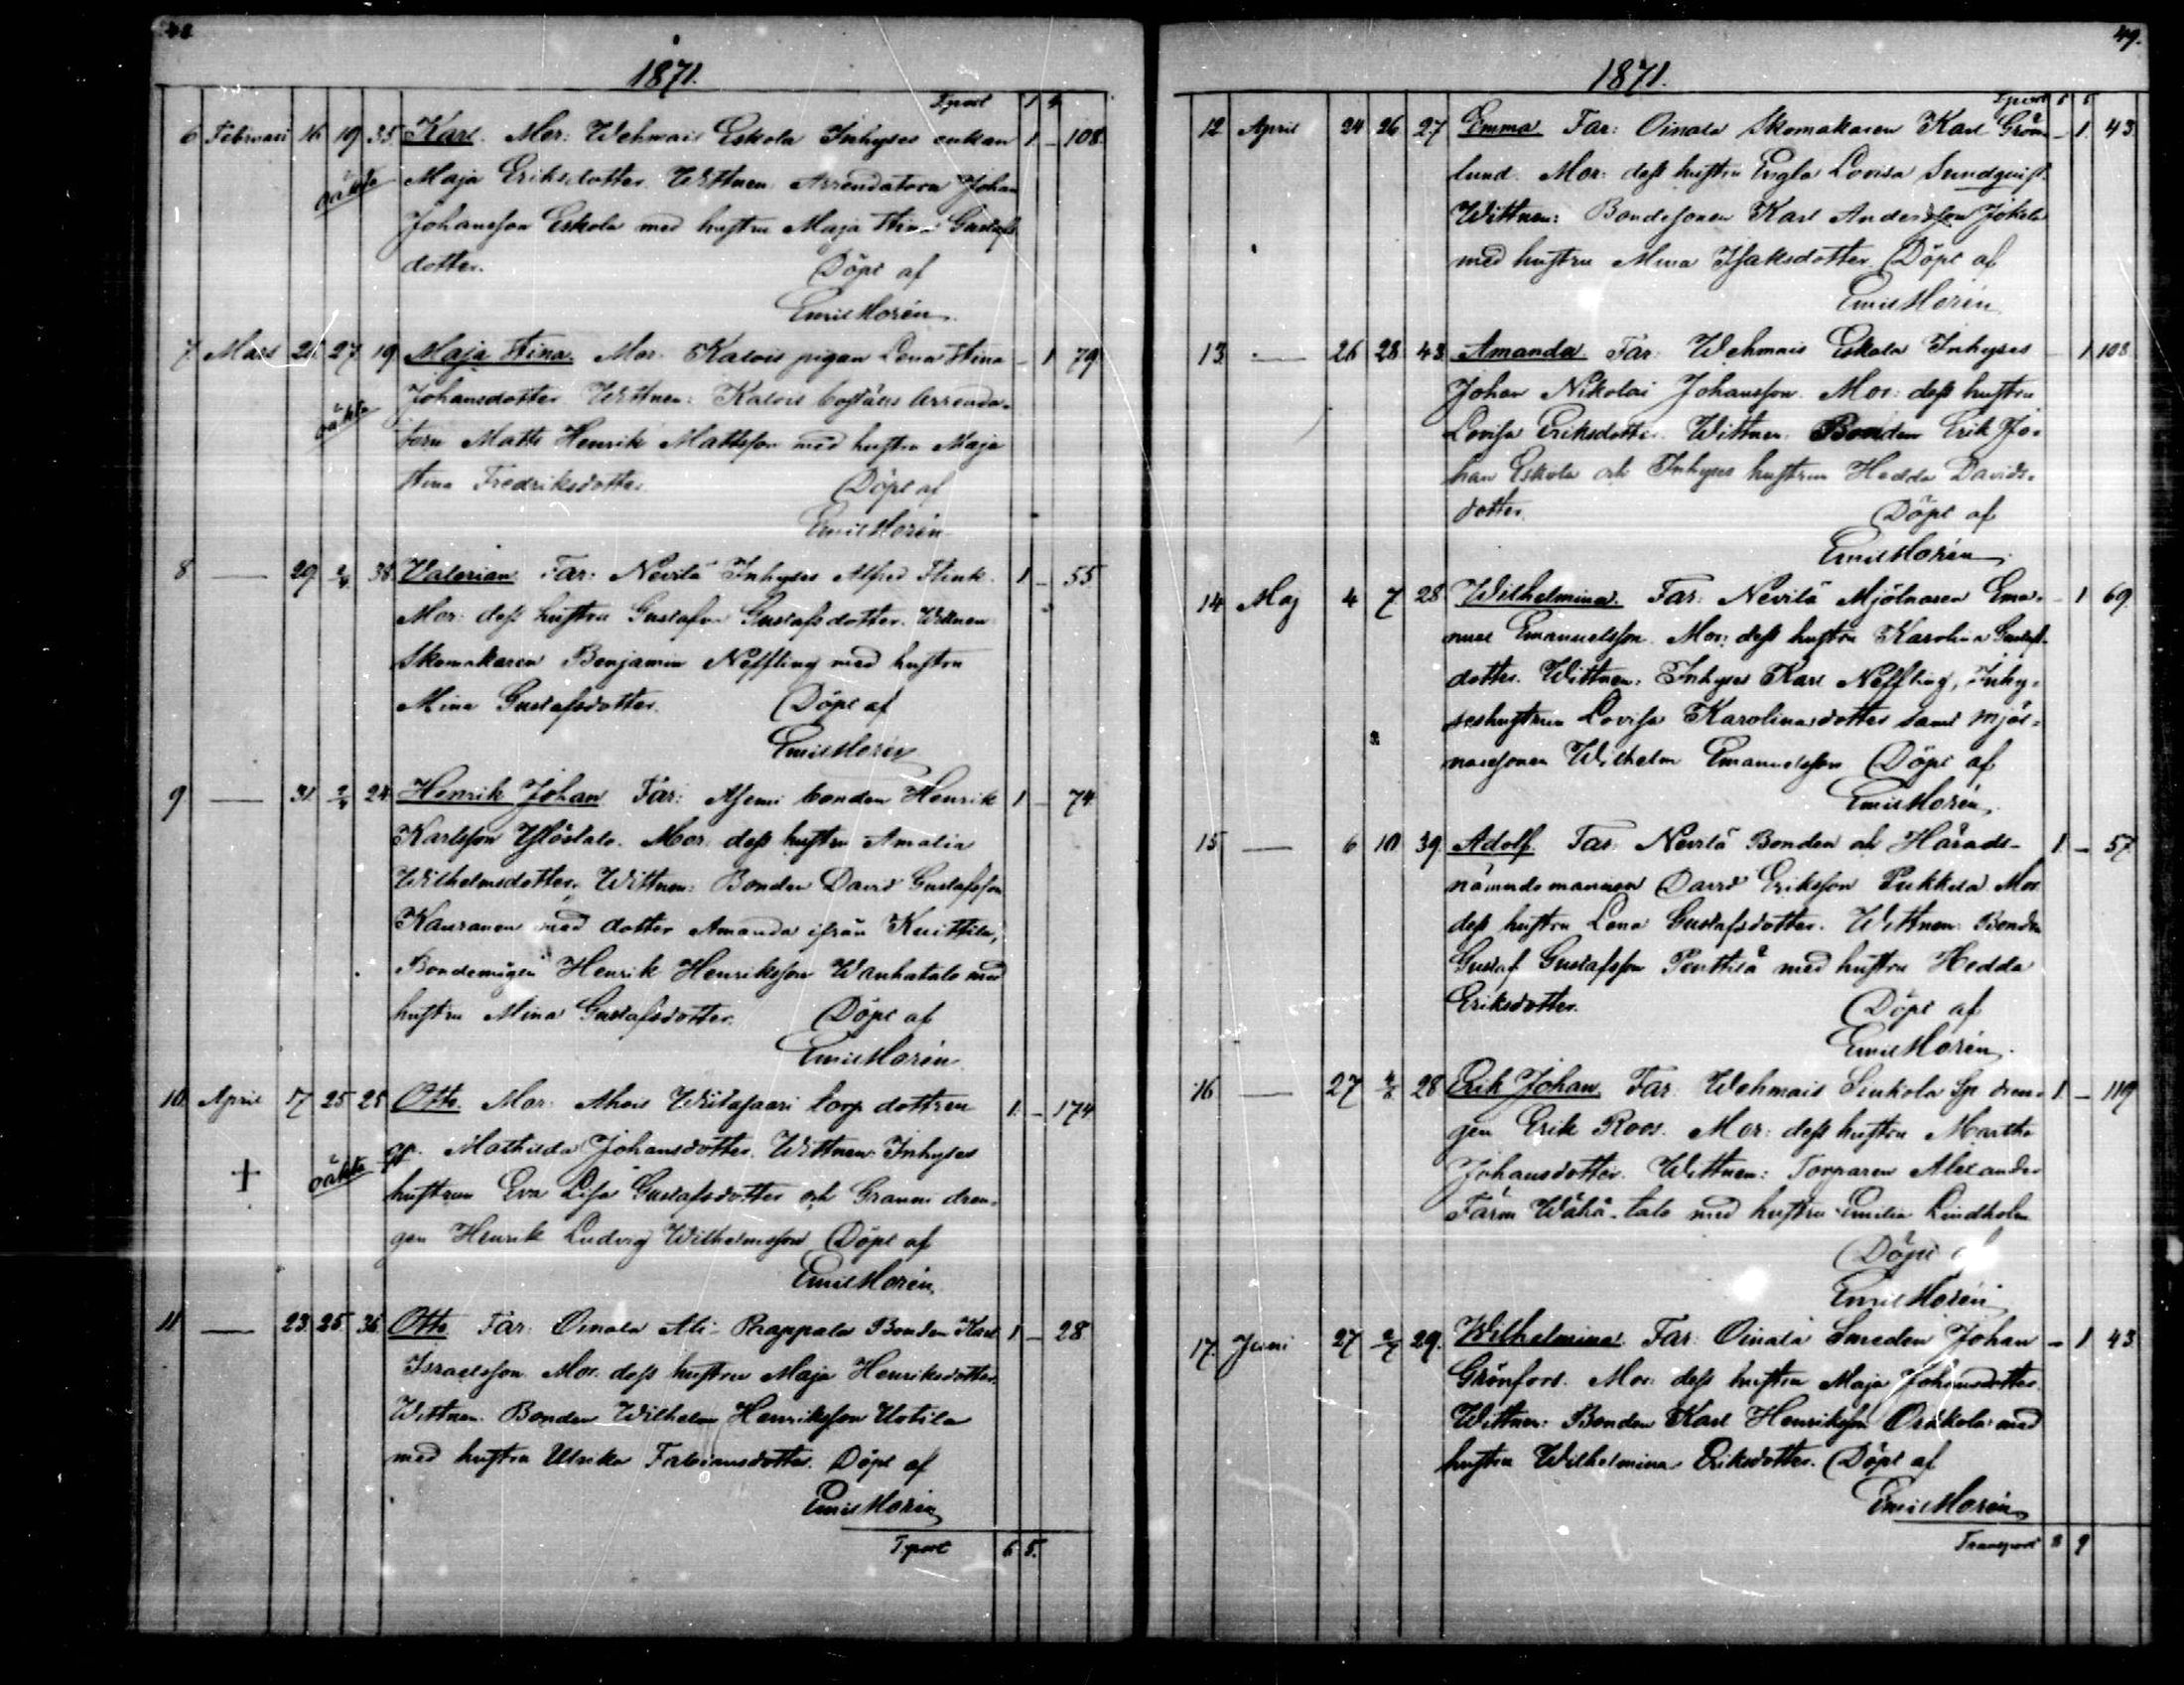 48
1871.
Tport 1 4
6 Februari 16 19 35 Karl. Mor: Wehmais Eskola Inhyses enkan 1 – 108
oäkta Maja Eriksdotter. Wittnen Arrendatorn Johan
Johansson Eskola med hustru Maja Stina Gustafs
dotter. Döpt af
Emil Morén
7 Mars 27 19 Maja Stina. Mor. Kalois pigan Lena Stina – 1 79
oäkta Johansdotter Wittnen: Kalois boställs Arrenda-
torn Matts Henrik Mattsson med hustru Maja
Stina Fredriksdotter. Döpt af
Emil Morén
8 — 29 2/4 38 Valerian Far: Nevilä Inhyses Alfred Flink. 1 – 55
Mor: dess hustru Gustafva Gustafsdotter. Wittnen
Skomakaren Benjamin Neffling med hustru
Mina Gustafsdotter. Döpt af
Emil Morén
9 — 31 2/4 24 Henrik Johan Far: Asemi bonden Henrik 1 – 74
Karlsson Mor: dess hustru Amalia
Wilhelmsdotter. Wittnen: Bonden David Gustafsson
Kauranen med dotter Amanda ifrån Knittilä,
Bondemågen Henrik Henriksson Wanhatalo med
hustru Mina Gustafsdotter. Döpt af
Emil Morén
10 April 17 25 25 Otto. Mor: Ahois Wiitasaari torp dottren 1 – 174
+ oäkta Mathilda Johansdotter. Wittnen: Inhyses
hustrun Eva Lisa Gustafsdotter och Granni dren-
gen Henrik Ludvig Wilhelmsson Döpt af
Emil Morén
11 — 23 25 36 Otto Far: Oinala Ali-Prappala Bonden Karl 1 – 28
Israelsson. Mor: dess hustru Maja Henriksdotter.
Wittnen. Bonden Wilhelm Henriksson Uotila
med hustru Ulrika Fabiansdotter. Döpt af
Emil Morén
T.port 6 5.
49.
1871.
Tport 6 5
12 April 24 26 27 Emma Far: Oinala Skomakaren Karl Grön- – 1. 43
lund. Mor: dess hustru Engla Lovisa Sundqvist.
Wittnen: Bondesonen Karl Andersson Jokela
med hustru Mina Isaksdotter. Döpt af
Emil Morén
13 — 26 28 43 Amanda Far: Wehmais Eskola Inhyses – 1 108
Johan Nikolai Johansson. Mor: dess hustru
Lovisa Eriksdotter. Wittnen. Bonden Erik Jo-
han Eskola och Inhyses hustrun Hedda Davids-
dotter. Döpt af
Emil Morén
14 Maj 4 7 28 Wilhelmina. Far: Nevilä Mjölnaren Ema- – 1 69
nuel Emanuelsson. Mor: dess hustru Karolina Gustafs-
dotter. Wittnen: Inhyses Karl Neffling, Inhy-
seshustrun Lovisa Karolinasdotter samt Mjöl-
naresonen Wilhelm Emanuelsson Döpt af
Emil Morén
15 — 6 10 39 Adolf. Far: Nevilä Bonden och Härads- 1. – 57
nämndemannen David Eriksson Pukkila Mor.
dess hustru Lena Gustafsdotter. Wittnen: Bonden
Gustaf Gustafsson Penttilä med hustru Hedda
Eriksdotter. Döpt af
Emil Morén
16 — 27 28 Erik Johan. Far: Wehmais Sinkola Sp. dren- 1 – 119
gen Erik Roos. Mor: dess hustru Martha
Johansdotter. Wittnen: Torparen Alexander
Färm Wähä-talo med hustru Emilia Lindholm
Döpt af
Emil Morén
17. Juni 27 2/7 29. Wilhelmina. Far: Oinala Smeden Johan – 1 43
Grönfors. Mor: dess hustru Maja Johansdotter.
Wittnen: Bonden Karl Henriksson med
hustru Wilhelmina Eriksdotter. Döpt af
Emil Morén
Transport 8 9